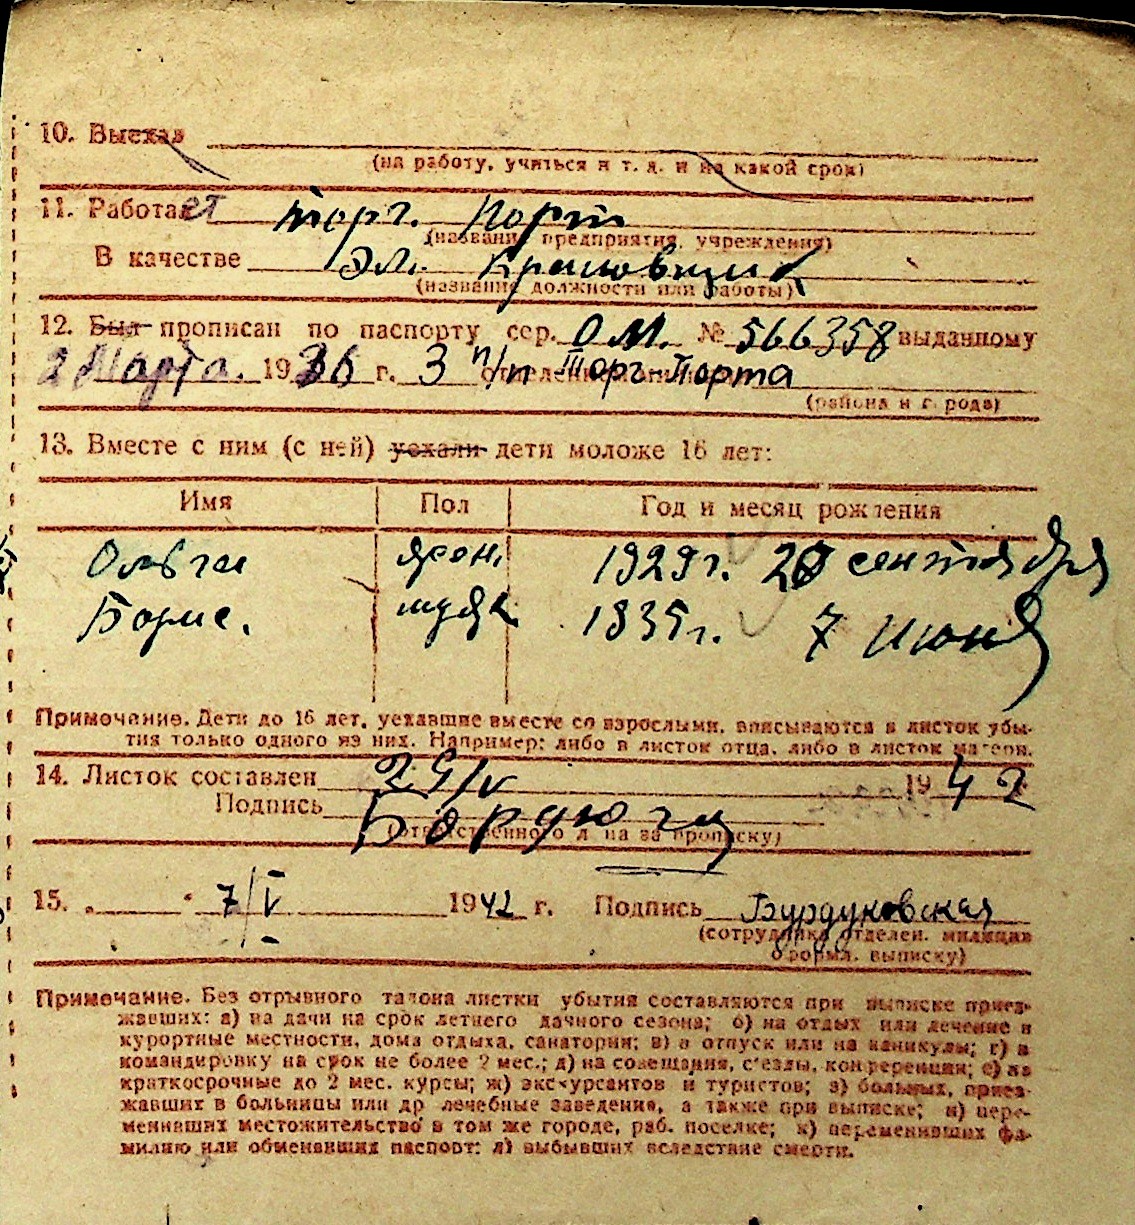 10. Выехал
(на работу, учиться и т. д. и на какой срок)
11. Работает торг. Порт
(название предприятия, учреждения)
В качестве Эл. Крановщик
(название должности или работы)
12. Был прописан по паспорту сер. О.М. № 566358 выданному
2 Марта. 1936 г. 3 п/п Торг-Порта
(района и города)
13. Вместе с ним (с ней) уехали дети моложе 16 лет:
Имя Пол Год и месяц рождения
Ольга жен. 1929 г. 20 сентября
Борис. муж 1935 г. 7 Июня
Примечание. Дети до 16 лет, уехавшие вместе со взрослыми, вписываются в листок убы-
тия только одного из них. Например: либо в листок отца, либо в листок матери.
14. Листок составлен 29/V 1942
Подпись
(ответственного лица за прописку)
15. 7/V 1942 г. Подпись Бурдуковская
(сотрудника отделен. милиции
оформл. выписку)
Примечание. Без отрывного талона листки убытия составляются при выписке приез-
жавших: а) на дачи на срок летнего дачного сезона; б) на отдых или лечение в
курортные местности, дома отдыха, санатории; в) в отпуск или на каникулы; г) в
командировку на срок не более 2 мес.; д) на совещания, с'езды, конференции; е) на
краткосрочные до 2 мес. курсы; ж) экскурсантов и туристов; з) больных, приез-
жавших в больницы или др лечебные заведения, а также при выписке; и) пере-
менивших местожительство в том же городе, раб. поселке; к) переменивших фа-
милию или обменявших паспорт; л) выбывших вследствие смерти.